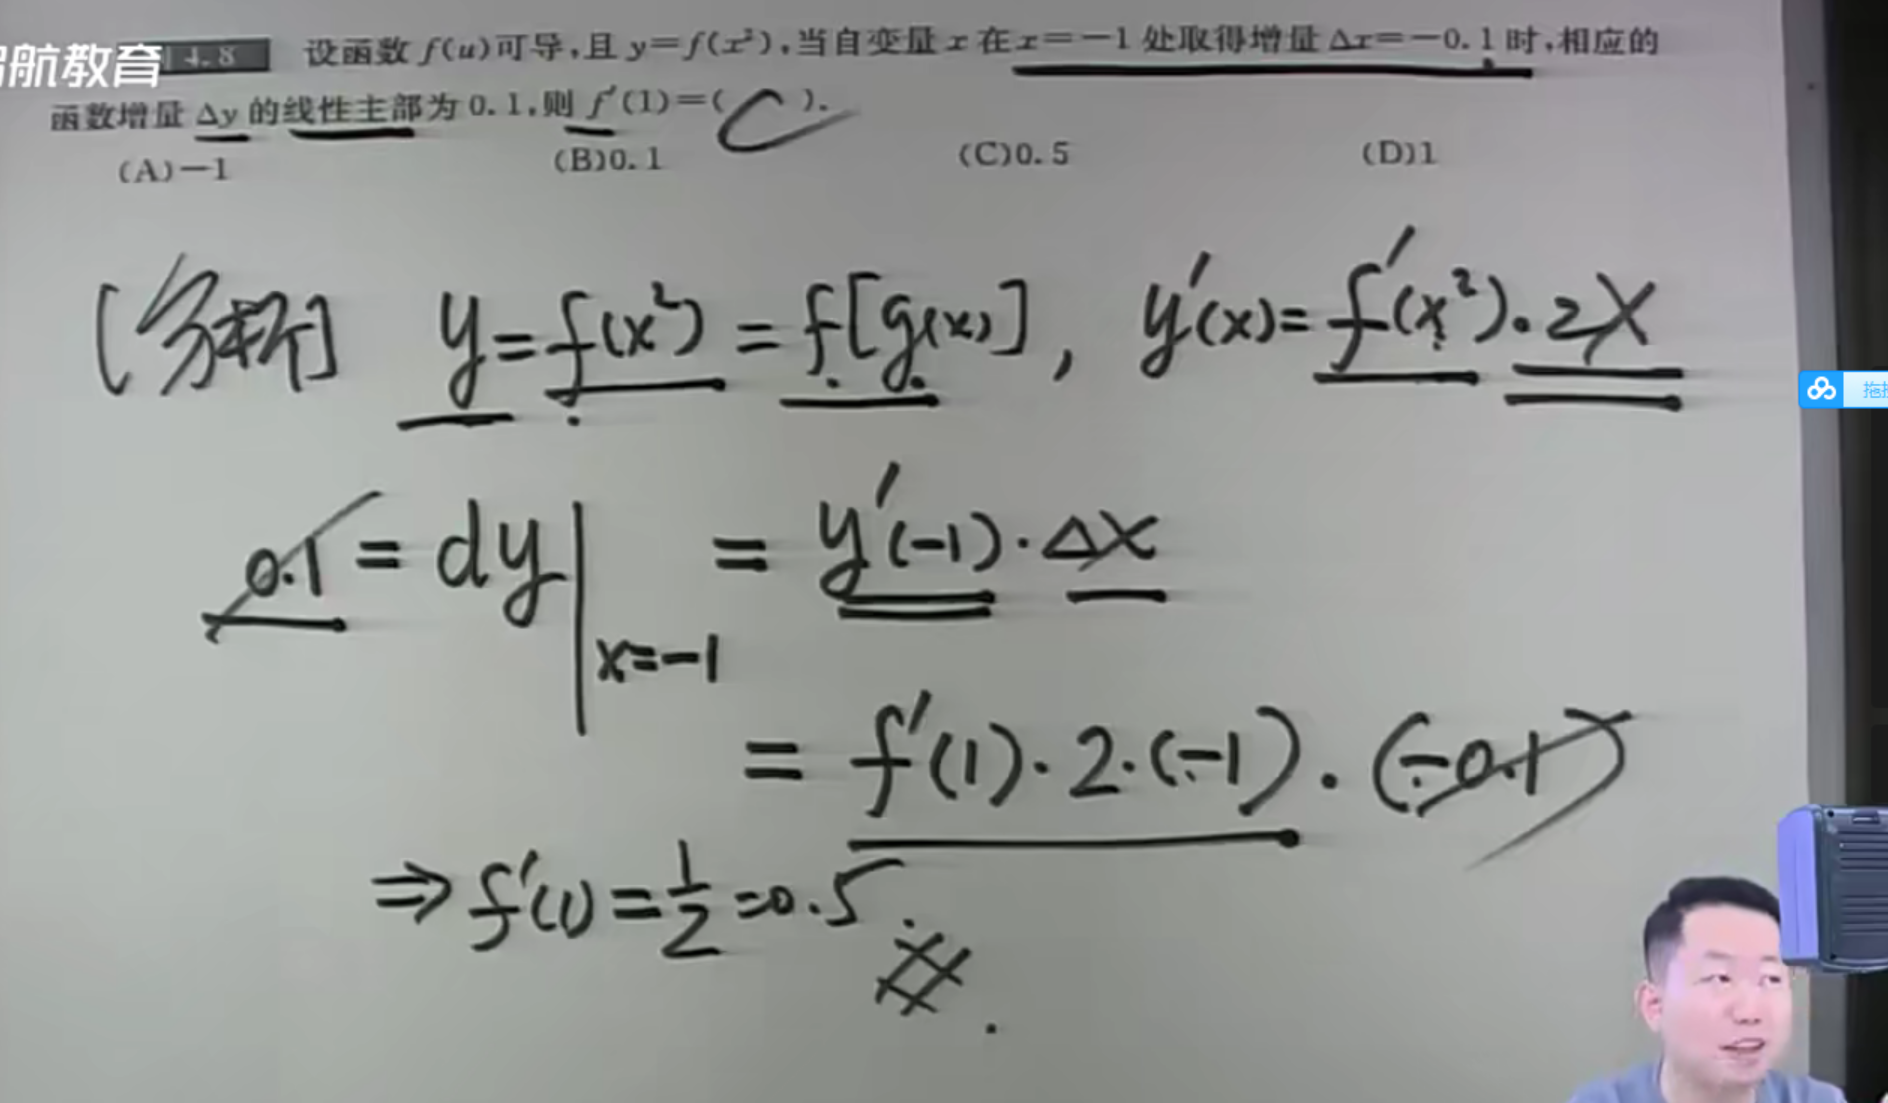 航教育
4.8 设函数 f(u)可导,且 y=f(x²),当自变量 x 在x=-1 处取得增量 Δx=-0.1 时,相应的
函数增量 Δy 的线性主部为 0.1,则 f′(1)=( C ).
(A)-1 (B)0.1 (C)0.5 (D)1
[分析] y=f(x²)=f[g(x)], y′(x)=f′(x²)·2x
0.1=dy|x=-1 = y′(-1)·Δx
= f′(1)·2·(-1)·(-0.1)
⇒f′(1)=1/2=0.5.
#.